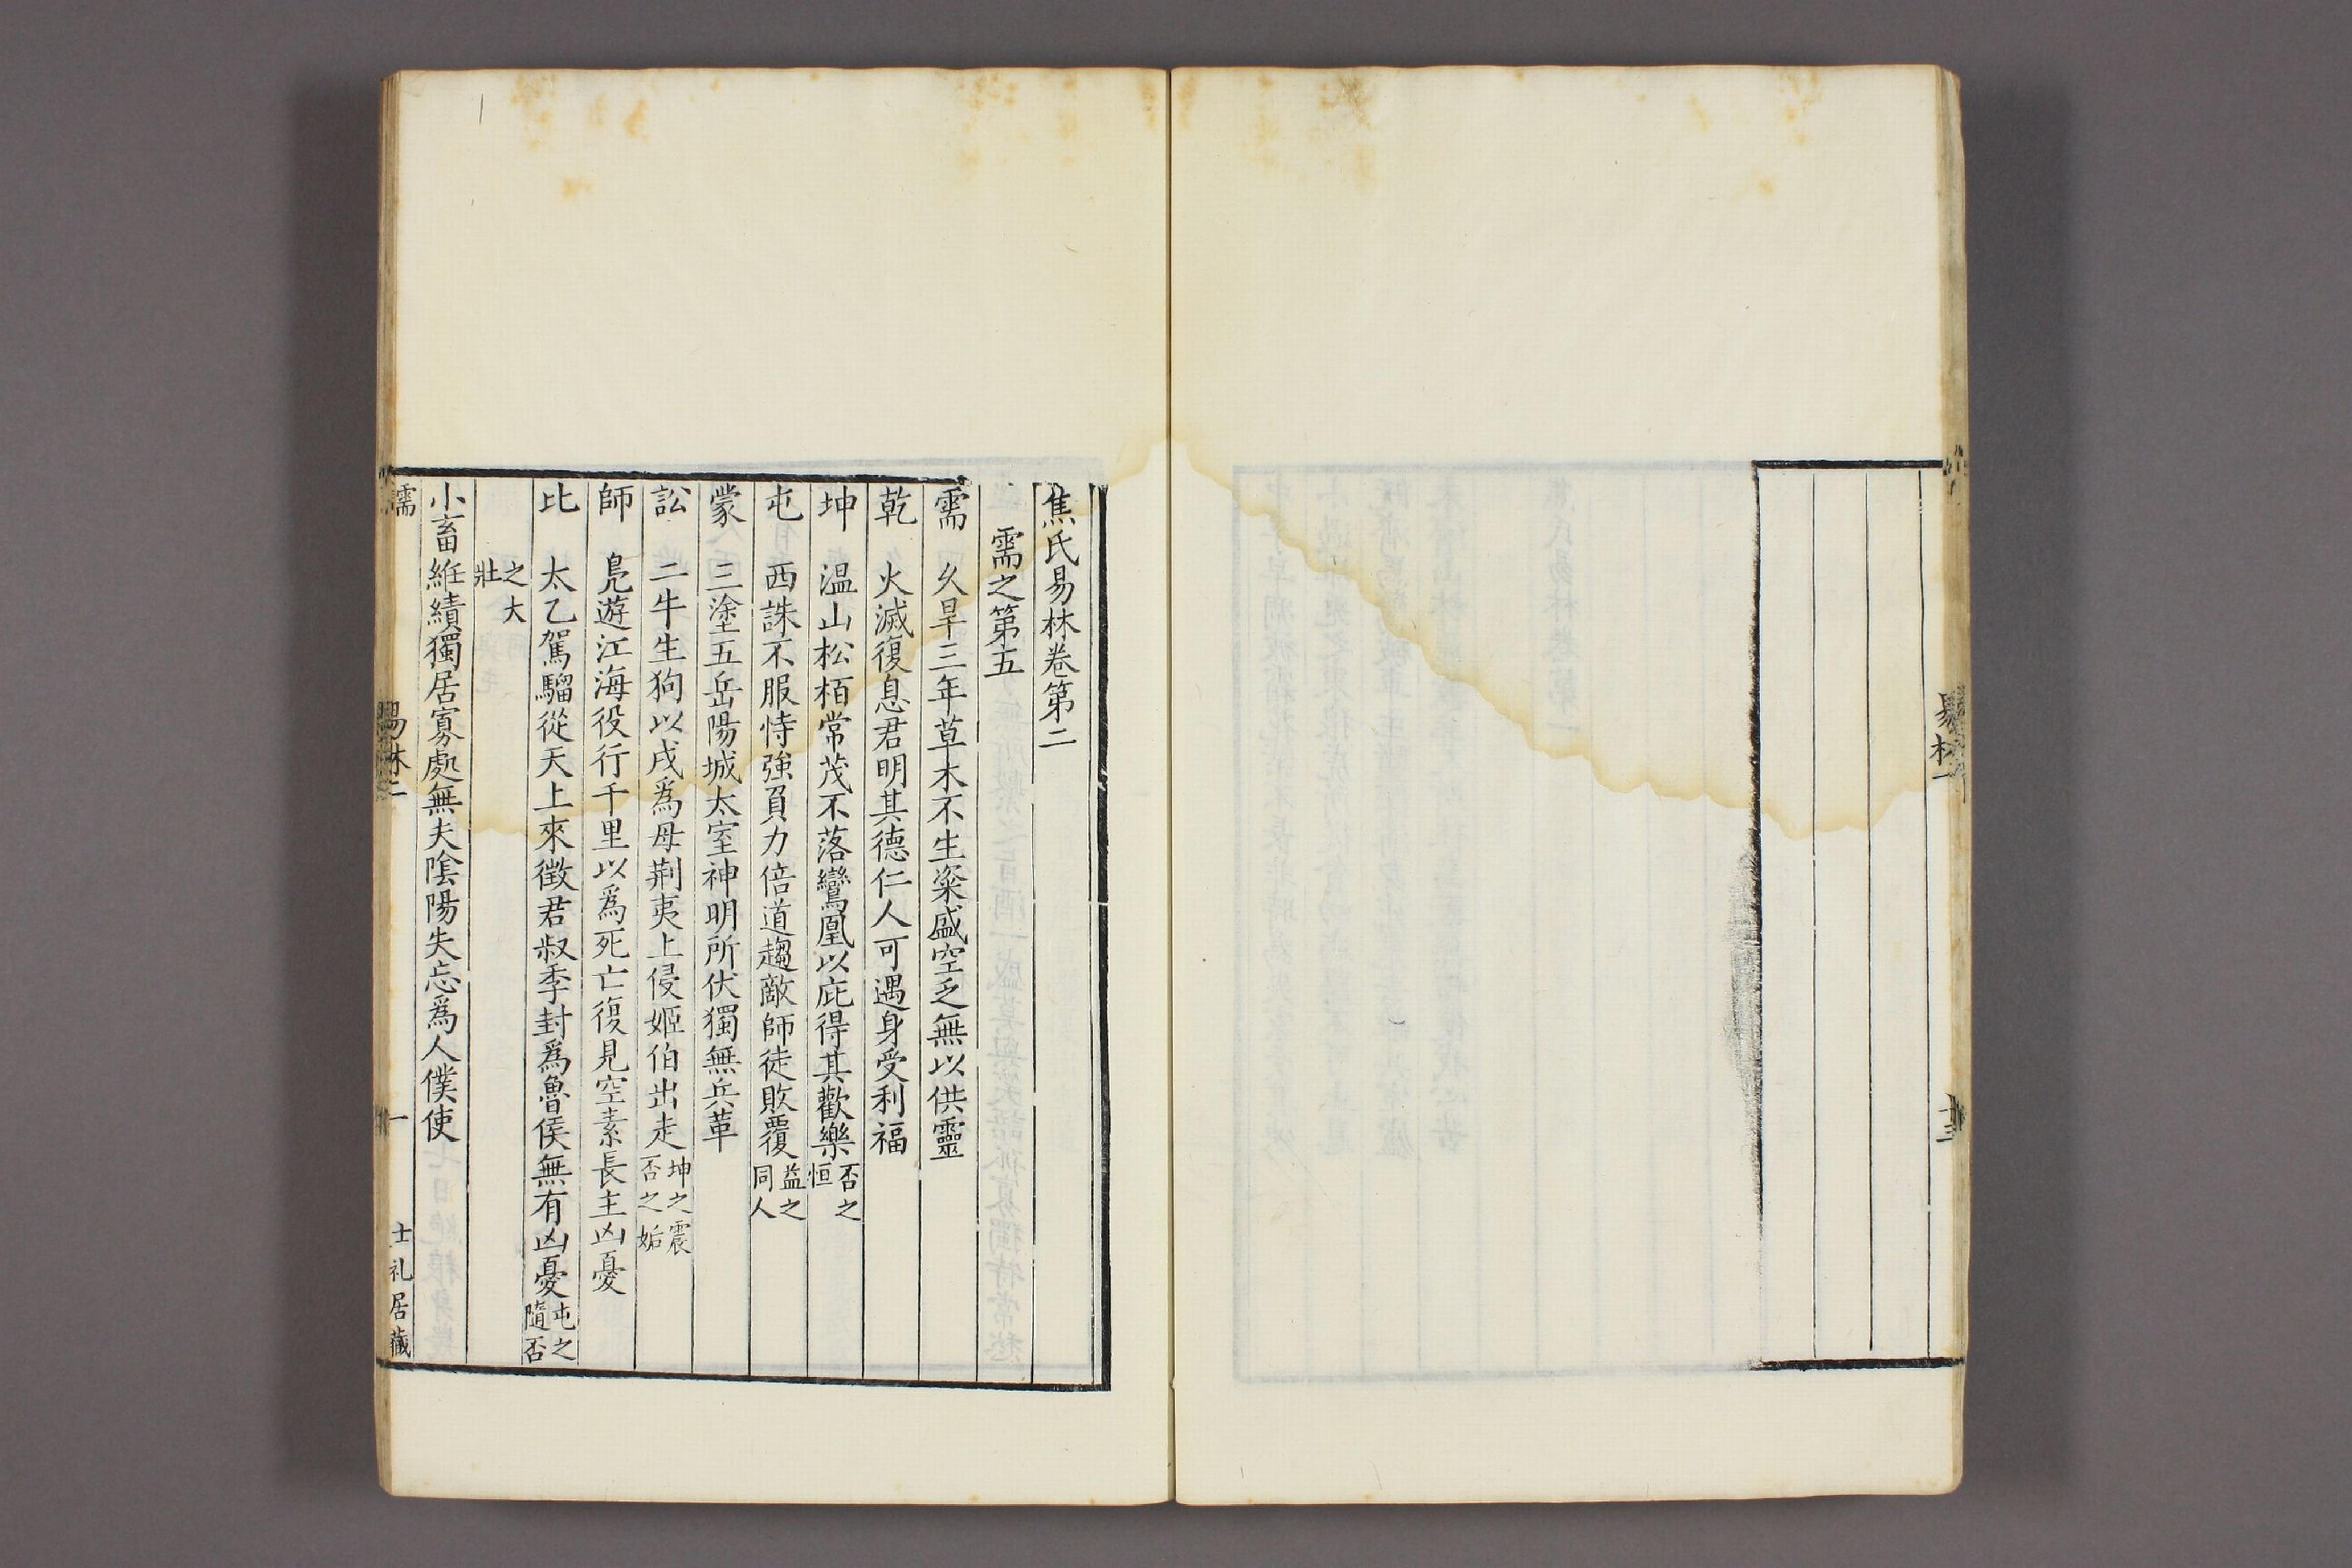 易林一
焦氏易林卷第二
需之第五
需 久旱三年草木不生粢盛空乏無以供靈
乾 火滅復息君明其德仁人可遇身受利福
坤 温山松栢常茂不落鸞凰以庇得其歡樂否之恒
屯 西誅不服恃強負力倍道趨敵師徒敗覆益之同人
蒙 三塗五岳陽城太室神明所伏獨無兵革
訟 二牛生狗以戌爲母荆夷上侵姬伯出走坤之震否之姤
師 鳧遊江海役行千里以爲死亡復見空素長主凶憂
比 太乙駕騮從天上來徵君叔季封爲魯侯無有凶憂屯之隨否
之大壯
小畜 紝績獨居寡處無夫陰陽失忘爲人僕使
需 易林二 一 士礼居藏